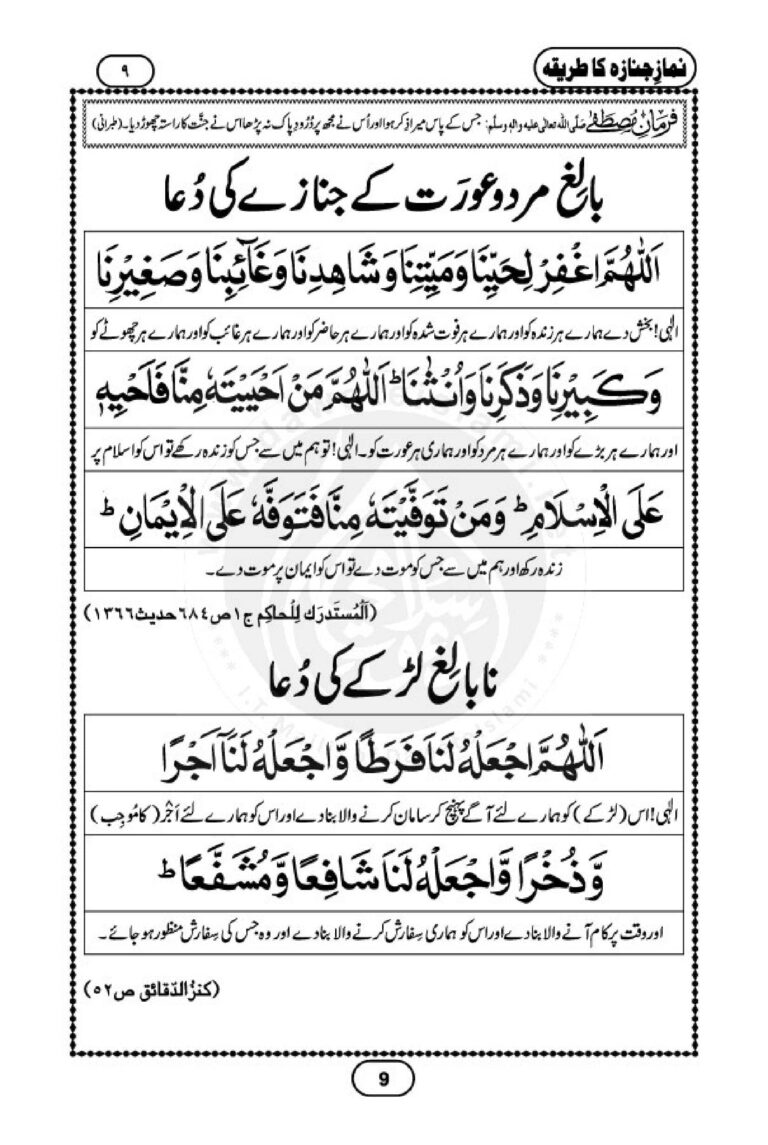 نمازِ جنازہ کا طریقہ
۹
فرمانِ مصطفٰے صلی اللہ تعالٰی علیہ والہٖ وسلم: جس کے پاس میرا ذکر ہوا اور اُس نے مجھ پر دُرُودِ پاک نہ پڑھا اس نے جنّت کا راستہ چھوڑ دیا۔ (طبرانی)
بالِغ مرد و عورَت کے جنازے کی دُعا
اَللّٰهُمَّ اغْفِرْ لِحَيِّنَا وَمَيِّتِنَا وَشَاهِدِنَا وَغَآئِبِنَا وَصَغِيْرِنَا
الٰہی! بخش دے ہمارے ہر زندہ کو اور ہمارے ہر فوت شدہ کو اور ہمارے ہر حاضر کو اور ہمارے ہر غائب کو اور ہمارے ہر چھوٹے کو
وَكَبِيْرِنَا وَذَكَرِنَا وَاُنْثٰنَا ؕ اَللّٰهُمَّ مَنْ اَحْيَيْتَهٗ مِنَّا فَاَحْيِهٖ
اور ہمارے ہر بڑے کو اور ہمارے ہر مرد کو اور ہماری ہر عورت کو۔ الٰہی! تو ہم میں سے جس کو زندہ رکھے تو اس کو اسلام پر
عَلَى الْاِسْلَامِ ؕ وَمَنْ تَوَفَّيْتَهٗ مِنَّا فَتَوَفَّهٗ عَلَى الْاِيْمَانِ ؕ
زندہ رکھ اور ہم میں سے جس کو موت دے تو اس کو ایمان پر موت دے۔
(اَلْمُستَدرَك لِلْحاكِم ج۱ ص٦٨٤ حدیث١٣٦٦)
نابالِغ لڑکے کی دُعا
اَللّٰهُمَّ اجْعَلْهُ لَنَا فَرَطًا وَّاجْعَلْهُ لَنَآ اَجْرًا
الٰہی! اس (لڑکے) کو ہمارے لئے آگے پہنچ کر سامان کرنے والا بنا دے اور اس کو ہمارے لئے اَجْر (کا مُوجِب)
وَّذُخْرًا وَّاجْعَلْهُ لَنَا شَافِعًا وَّمُشَفَّعًا ؕ
اور وقت پر کام آنے والا بنا دے اور اس کو ہماری سِفارش کرنے والا بنا دے اور وہ جس کی سِفارش منظور ہو جائے۔
(كنزُ الدَّقائق ص٥٢)
9